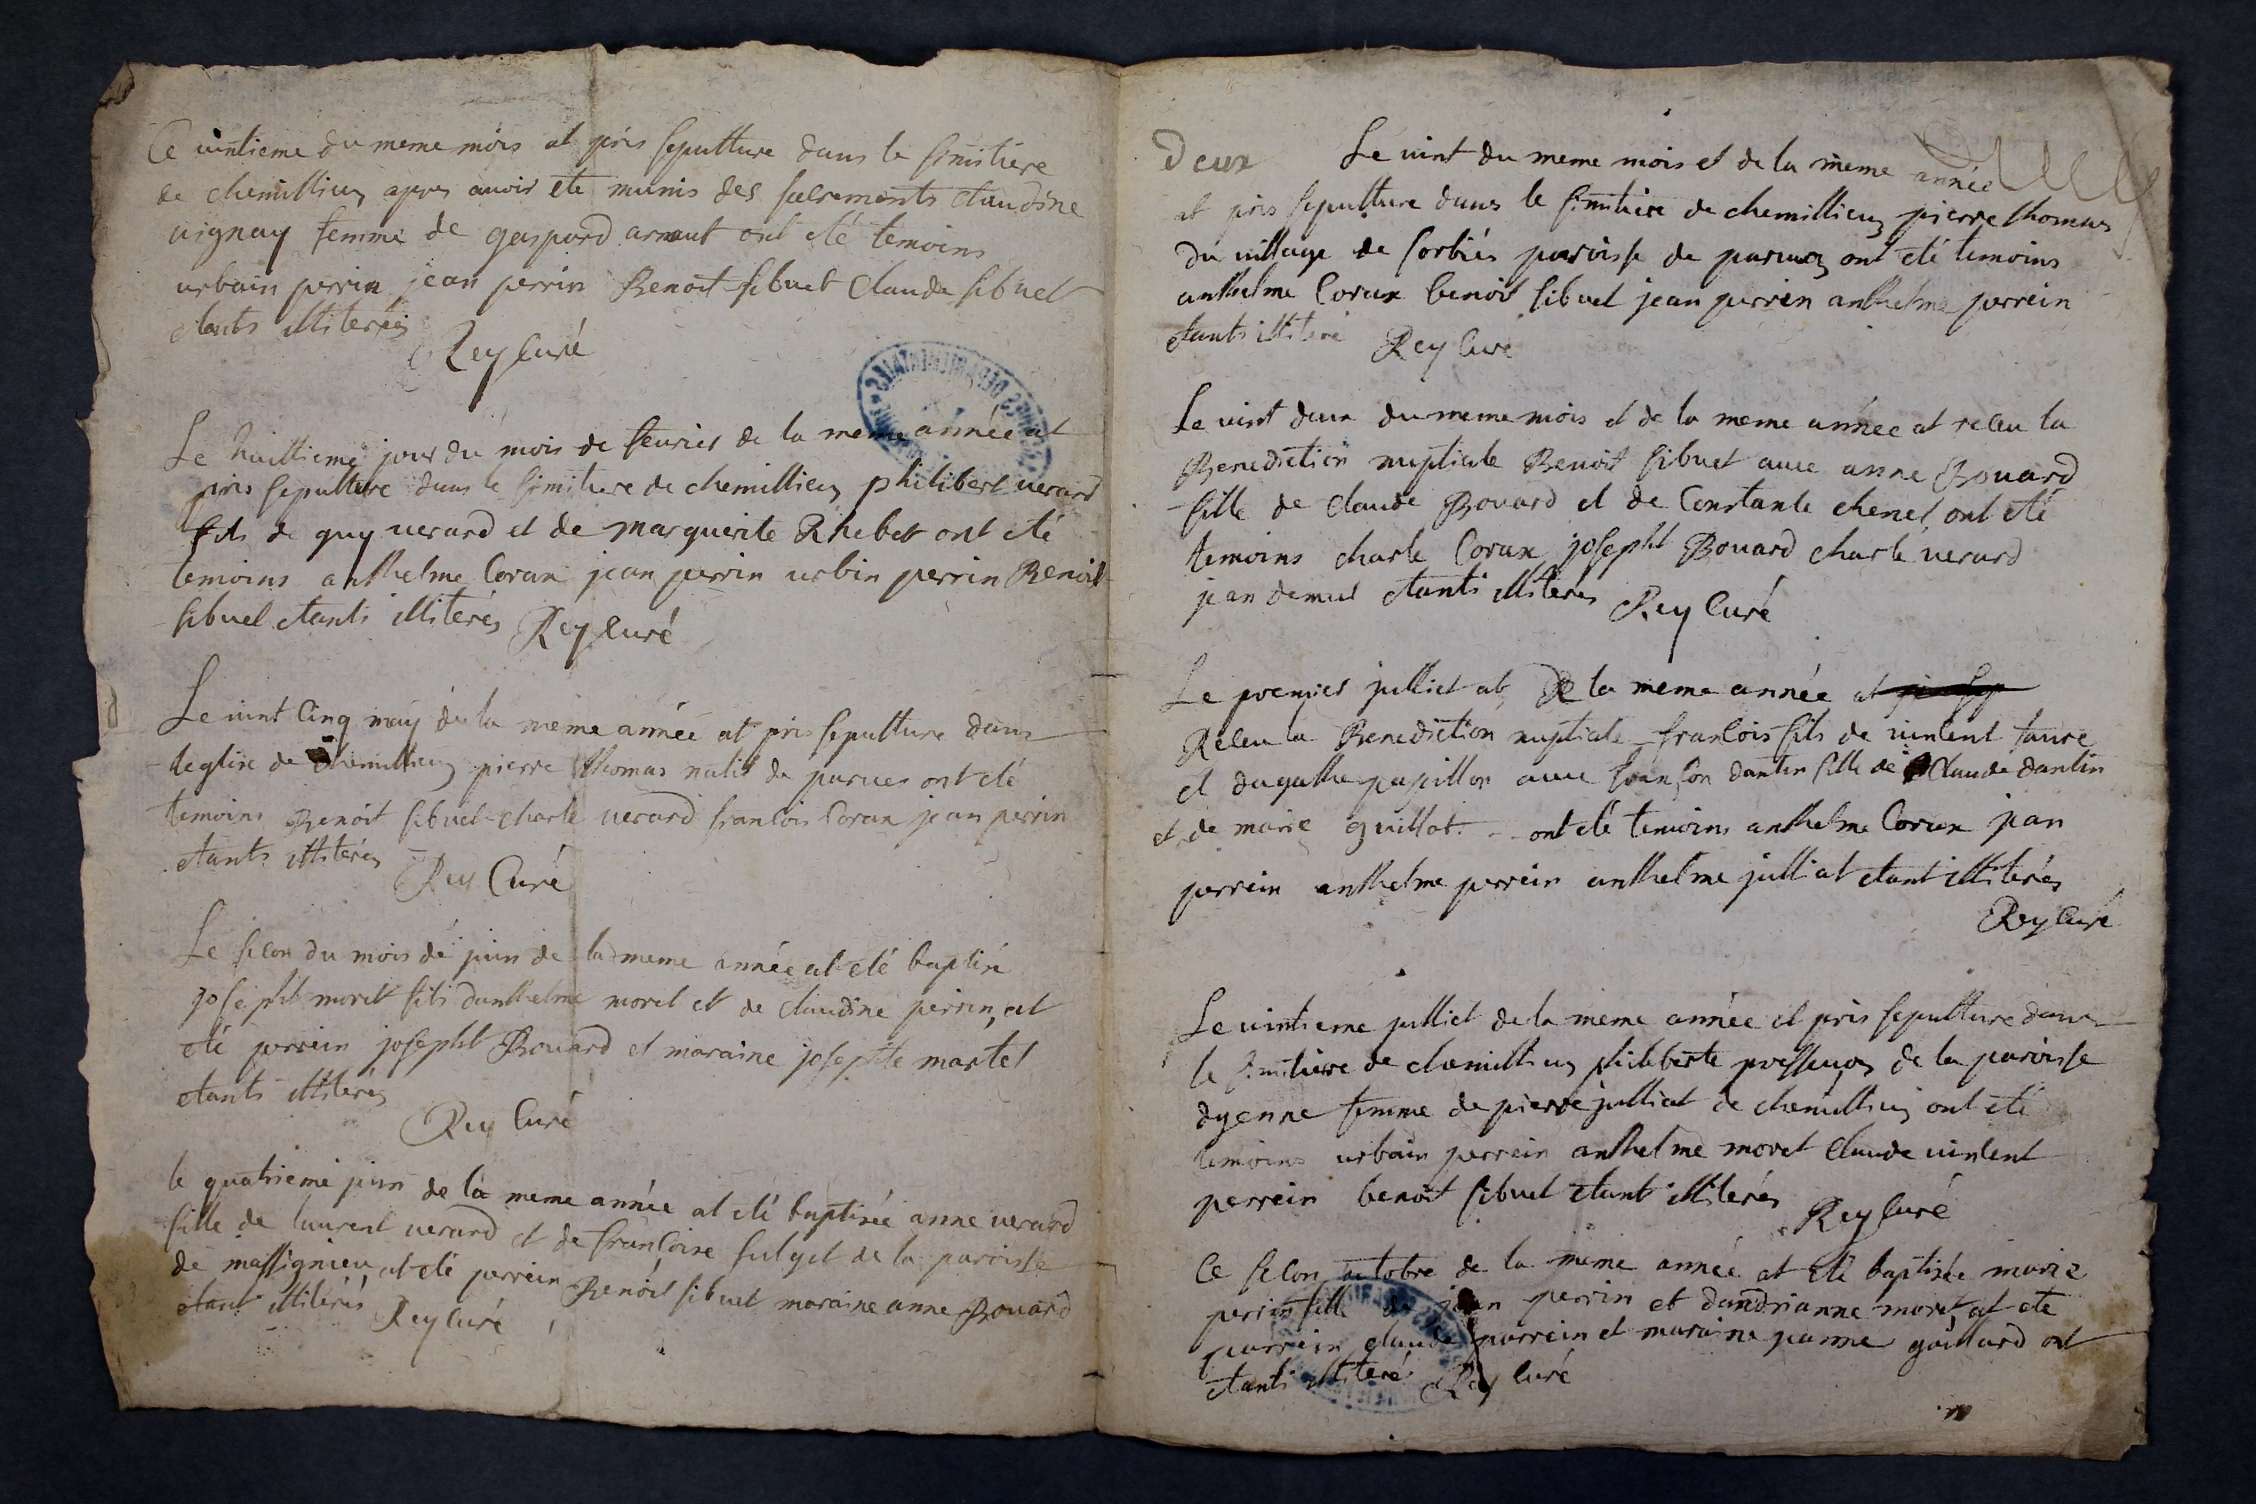 Ce vintieme du meme mois at pris sepulture dans le simitiere
de chemillieu apres avoir ete munis des sacrements claudine
vignay femme de gaspard arnaut ont eté temoins
urbain perrin jean perrin Benoit sibuet Claude sibuet
etants illiterés
Rey Curé
Le huittieme jour du mois de fevrier de la meme année at
pris sepulture dans le simitiere de chemillieu philibert verard
fils de guy verard et de marguerite Rhebet ont eté
temoins anthelme Corax jean perrin urbin perrin Benoit
sibuel etants illiterés Rey curé
Le vint Cinq may de la meme année at pris sepulture dans
leglise de chemillieu pierre thomas natif de parves ont eté
temoins Benoit sibuet charle verard francois Corax jean perrin
etants illiterés
Rey Curé
Le secon du mois de juin de la meme année at eté baptisé
josepht moret fils danthelme moret et de claudine perrin, at
eté perrein josepht Bouard et maraine josephte martel
etants illiterés
Rey Curé
le quatrieme juin de la meme année at eté baptisée anne verard
fille de laurent verard et de francoise sulget de la paroisse
de massignieu at eté perrein Benoit sibuet maraine anne Bouard
etant illiterés Rey curé
Deux
Le vint du meme mois et de la meme année
at pris sepulture dans le simitiere de chemillieu pierre thomas
du village de sorbiés paroisse de parves ont eté temoins
anthelme Corax benoit sibuet jean perrin anthelme perrein
etants illiteré Rey Curé
Le vint deux du meme mois et de la meme année at receu la
Benediction nuptiale Benoit sibuet avec anne Bouard
fille de Claude Bouard et de Constante chenet ont eté
temoins charle Corax josepht Bouard charle verard
jean demul etants illiterés Rey Curé
Le premier julliet at de la meme année at
Receu la Benediction nuptiale francois fils de vincent faure
et dagathe papillon avec francon dantin fille de Claude dantin
et de marie guillot ont eté temoins anthelme Corax jean
perrein anthelme perrein anthelme julliat etant illiterés
Rey Curé
Le vintieme julliet de la meme année at pris sepulture dans
le simitiere de chemillieu philiberte de la paroisse
dyenne femme de pierre julliat de chemillieu ont eté
temoins urbain perrein anthelme moret Claude vincent
perrein benoit sibuet etants illiterés Rey Curé
Ce secon octobre de la meme année at eté baptisée marie
perrin fille de jean perrin et dandrianne moret at ete
parrein claude parrein et maraine jeanne gaillard ont
etants illiteré Rey curé